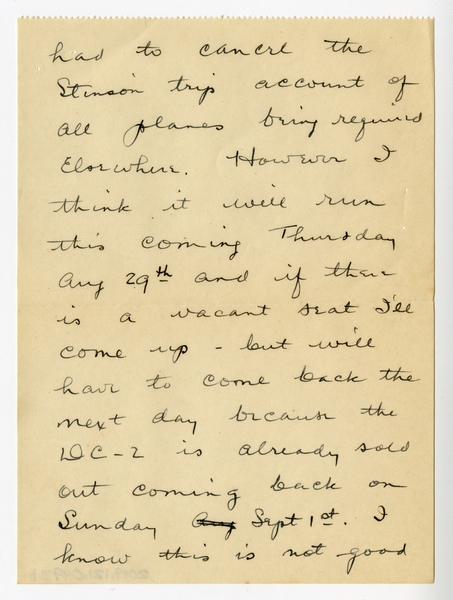 had to cancel the
Stinson trip account of
all planes being required
elsewhere. However I
think it will run
this coming Thursday
Aug 29th and if there
is a vacant seat I'll
come up - but will
have to come back the
next day because the
DC-2 is already sold
out coming back on
Sunday Aug Sept 1st. I
know this is not good